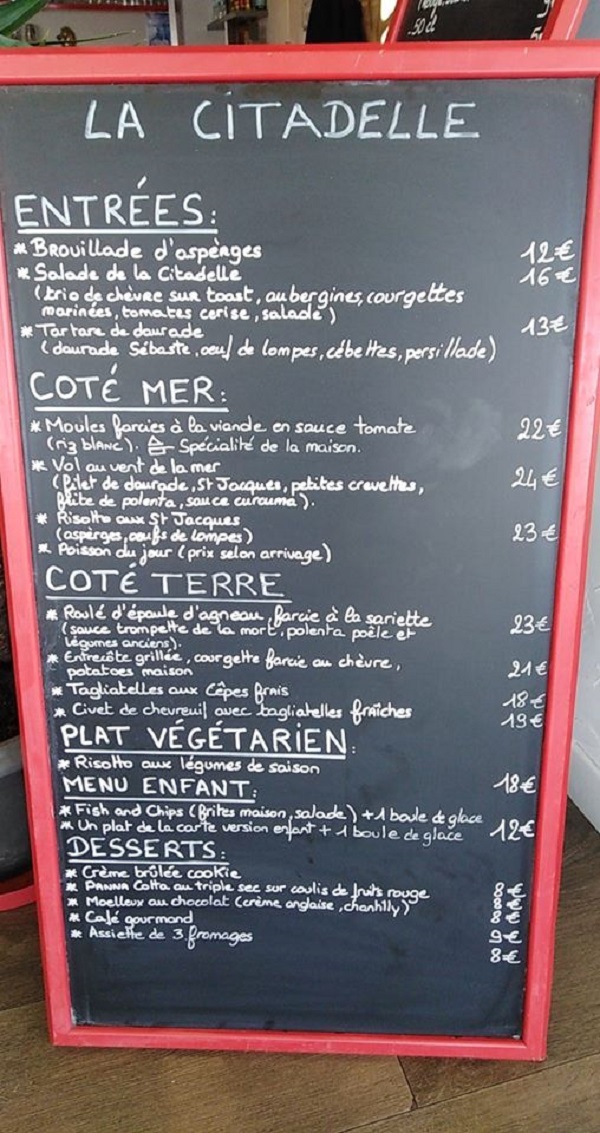 50 cl
LA CITADELLE
ENTRÉES:
* BRouillade d'asperges 12€
* Salade de la Citadelle 16€
(trio de chèvre sur toast, aubergines, courgettes
marinées, tomates cerise, salade)
* Tartare de daurade 13€
(daurade Sébaste, oeuf de lompes, cébettes, persillade)
COTÉ MER:
* Moules farcies à la viande en sauce tomate 22€
(riz blanc). Spécialité de la maison.
* Vol au vent de la mer 24€
(filet de daurade, St Jacques, petites crevettes,
frite de polenta, sauce curcuma).
* Risotto aux St Jacques 23€
(asperges, oeufs de lompes)
* Poisson du jour (prix selon arrivage)
COTÉ TERRE
* Roulé d'épaule d'agneau farcie à la sariette 23€
(sauce trompette de la mort, polenta poêle et
légumes anciens).
* Entrecôte grillée, courgette farcie au chèvre, 21€
potatoes maison
* Tagliatelles aux Cêpes frais 18€
* Civet de chevreuil avec tagliatelles fraîches 19€
PLAT VÉGÉTARIEN:
* Risotto aux légumes de saison 18€
MENU ENFANT:
* Fish and Chips (frites maison, salade) + 1 boule de glace
* Un plat de la carte version enfant + 1 boule de glace 12€
DESSERTS:
* Crème brûlée cookie 8€
* PANNA Cotta au triple sec sur coulis de fruits rouge 8€
* Moelleux au chocolat (crème anglaise, chantilly) 8€
* Café gourmand 9€
* Assiette de 3 fromages 8€